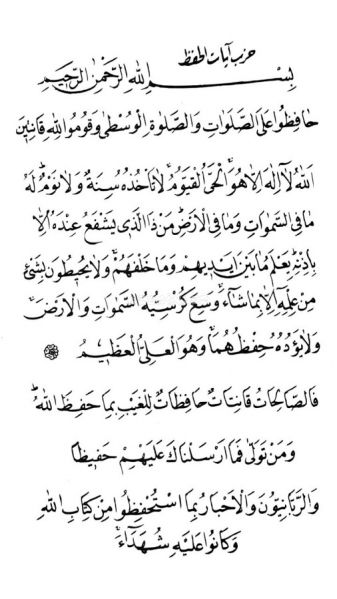 حزب آيات الحفظ
بِسْمِ اللهِ الرَّحْمٰنِ الرَّحِيمِ
حَافِظُوا عَلَى الصَّلَوَاتِ وَالصَّلٰوةِ الْوُسْطٰى وَقُومُوا لِلّٰهِ قَانِتِينَ
اَللّٰهُ لَآ اِلٰهَ اِلَّا هُوَۚ اَلْحَيُّ الْقَيُّومُۚ لَا تَأْخُذُهُ سِنَةٌ وَلَا نَوْمٌۜ لَهُ
مَا فِي السَّمٰوَاتِ وَمَا فِي الْاَرْضِۜ مَنْ ذَا الَّذ۪ي يَشْفَعُ عِنْدَهُٓ اِلَّا
بِاِذْنِه۪ۜ يَعْلَمُ مَا بَيْنَ اَيْد۪يهِمْ وَمَا خَلْفَهُمْۚ وَلَا يُح۪يطُونَ بِشَيْءٍ
مِنْ عِلْمِه۪ٓ اِلَّا بِمَا شَٓاءَۚ وَسِعَ كُرْسِيُّهُ السَّمٰوَاتِ وَالْاَرْضَۚ
وَلَا يَؤُ۫دُهُ حِفْظُهُمَاۚ وَهُوَ الْعَلِيُّ الْعَظ۪يمُ
فَالصَّالِحَاتُ قَانِتَاتٌ حَافِظَاتٌ لِلْغَيْبِ بِمَا حَفِظَ اللّٰهُۜ
وَمَنْ تَوَلّٰى فَمَٓا اَرْسَلْنَاكَ عَلَيْهِمْ حَف۪يظًا
وَالرَّبَّانِيُّونَ وَالْاَحْبَارُ بِمَا اسْتُحْفِظُوا مِنْ كِتَابِ اللّٰهِ
وَكَانُوا عَلَيْهِ شُهَدَٓاءَۚ